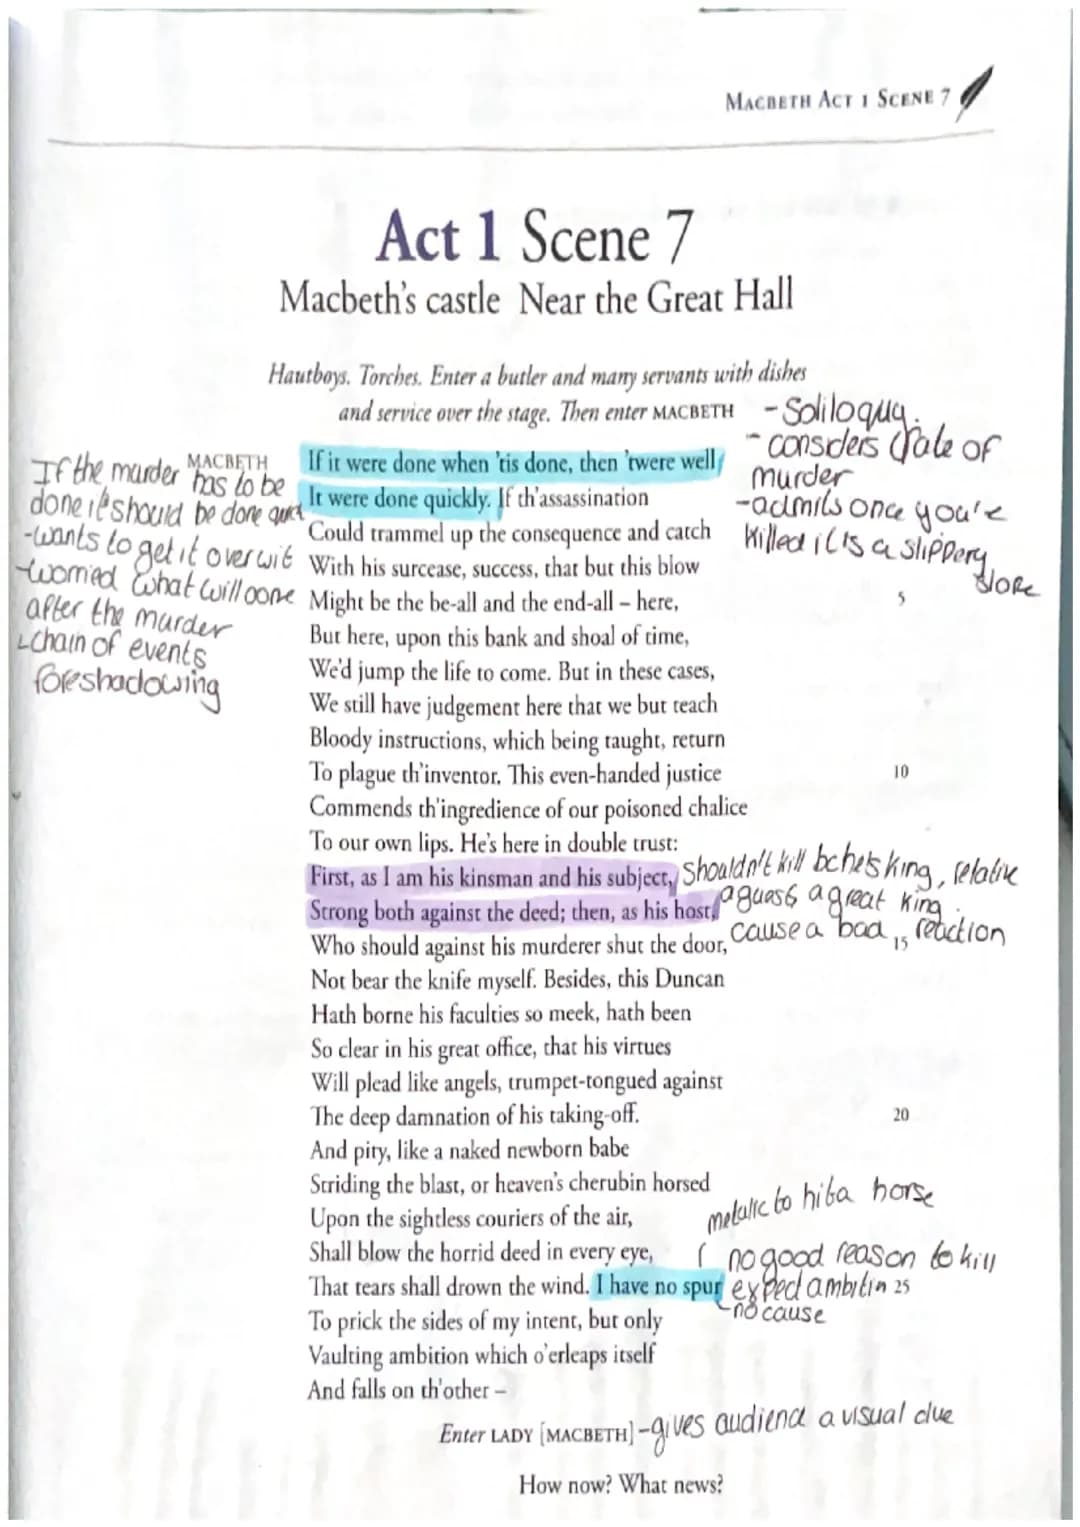 MACBETH ACT 1 SCENE 7
Act 1 Scene 7
Macbeth's castle Near the Great Hall
Hautboys. Torches. Enter a butler and many servants with dishes
and service over the stage. Then enter MACBETH
- Soliloquy.
- considers fate of
murder
- admits once you're
killed it is a slippery
slope
If the murder
has to be
done it should be done quick
- wants to get it over wit
worried what will come
after the murder
chain of events
foreshadowing
MACBETH
If it were done when 'tis done, then 'twere well
It were done quickly. If th'assassination
Could trammel up the consequence and catch
With his surcease, success, that but this blow
Might be the be-all and the end-all – here, 5
But here, upon this bank and shoal of time,
We'd jump the life to come. But in these cases,
We still have judgement here that we but teach
Bloody instructions, which being taught, return
To plague th'inventor. This even-handed justice 10
Commends th'ingredience of our poisoned chalice
To our own lips. He's here in double trust:
First, as I am his kinsman and his subject,
Strong both against the deed; then, as his host,
Who should against his murderer shut the door, 15
Not bear the knife myself. Besides, this Duncan
Hath borne his faculties so meek, hath been
So clear in his great office, that his virtues
Will plead like angels, trumpet-tongued against
The deep damnation of his taking-off. 20
And pity, like a naked newborn babe
Striding the blast, or heaven's cherubin horsed
Upon the sightless couriers of the air,
Shall blow the horrid deed in every eye,
That tears shall drown the wind. I have no spur 25
To prick the sides of my intent, but only
Vaulting ambition which o'erleaps itself
And falls on th'other –
shouldn't kill king, relative
a guest a great king.
cause a bad reaction
to hit a horse
no good reason to kill
expect ambition
no cause
Enter LADY [MACBETH] - gives audience a visual clue
How now? What news?